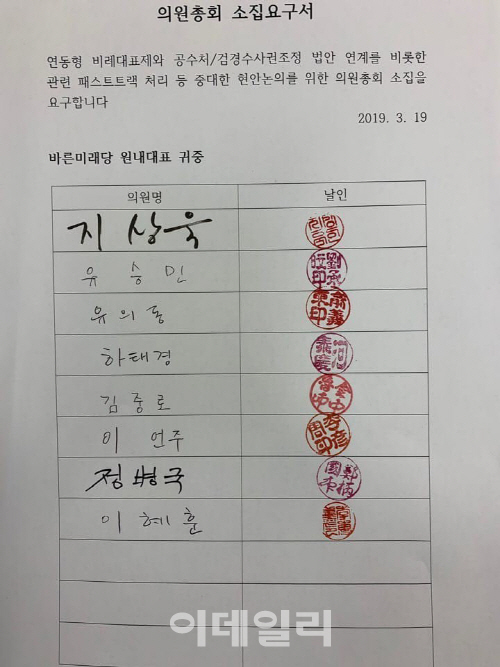 의원총회 소집요구서
연동형 비례대표제와 공수처/검경수사권조정 법안 연계를 비롯한
관련 패스트트랙 처리 등 중대한 현안논의를 위한 의원총회 소집을
요구합니다
2019. 3. 19
바른미래당 원내대표 귀중
의원명 날인
지상욱
유승민
유의동
하태경
김중로
이언주
정병국
이혜훈
이데일리